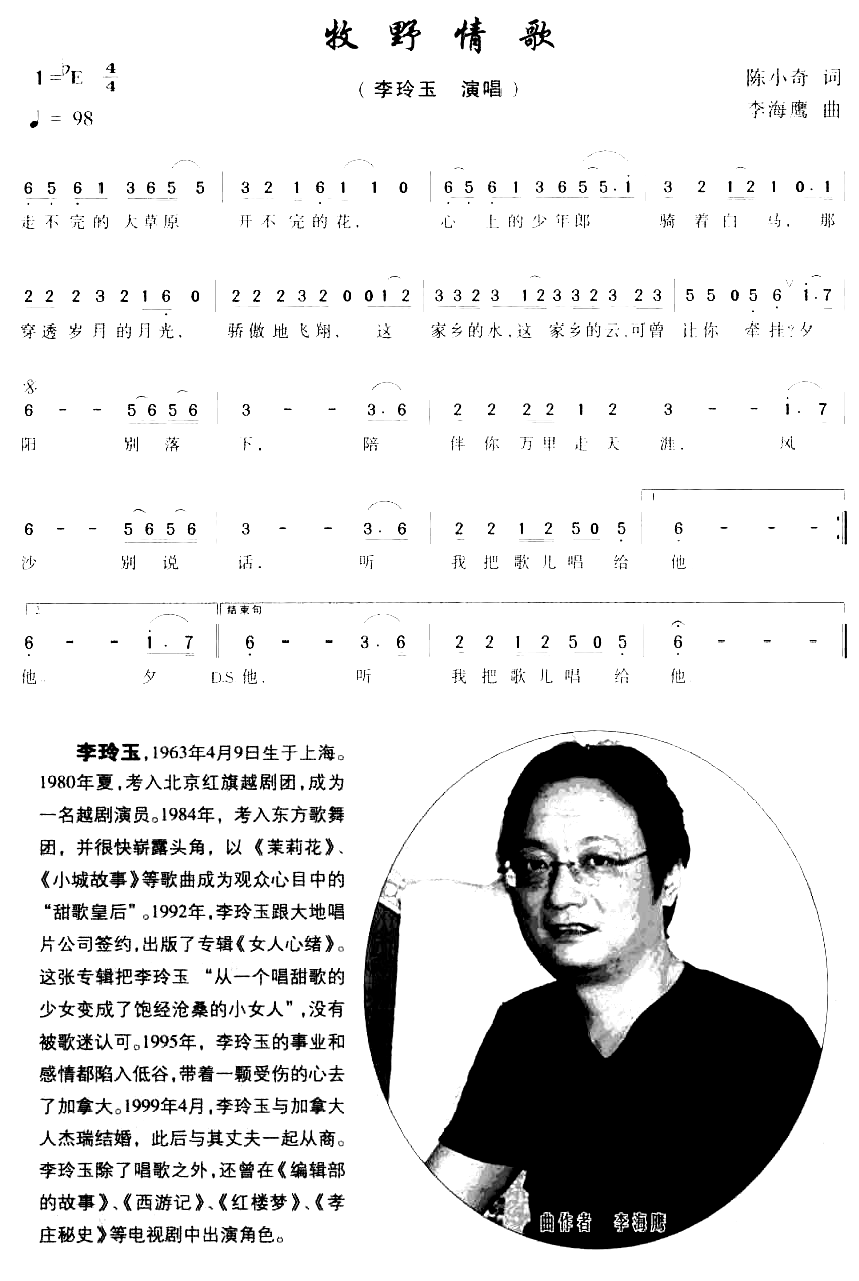 牧野情歌
1=♭E 4/4
（李玲玉 演唱）
陈小奇 词
♩= 98
李海鹰 曲
6 5 6 1 3 6 5 5 | 3 2 1 6 1 1 0 | 6 5 6 1 3 6 5 5. 1 | 3 2 1 2 1 0. 1
走不完的大草原 开不完的花, 心上的少年郎 骑着白马, 那
2 2 2 3 2 1 6 0 | 2 2 2 3 2 0 0 1 2 | 3 3 2 3 1 2 3 3 2 3 2 3 | 5 5 0 5 6 1. 7
穿透岁月的月光, 骄傲地飞翔, 这 家乡的水,这 家乡的云,可曾 让你 牵挂?夕
6 - - 5 6 5 6 | 3 - - 3. 6 | 2 2 2 2 1 2 | 3 - - 1. 7
阳 别落 下, 陪 伴你万里走天 涯, 风
6 - - 5 6 5 6 | 3 - - 3. 6 | 2 2 1 2 5 0 5 | 1. 6 - - - :‖
沙 别说 话, 听 我把歌儿唱 给 他
2. 6 - - 1. 7 ‖ 结束句 6 - - 3. 6 | 2 2 1 2 5 0 5 | 6 - - - ‖
他. 夕 D.S他, 听 我把歌儿唱 给 他.
李玲玉,1963年4月9日生于上海。
1980年夏,考入北京红旗越剧团,成为
一名越剧演员。1984年,考入东方歌舞
团,并很快崭露头角,以《茉莉花》、
《小城故事》等歌曲成为观众心目中的
“甜歌皇后”。1992年,李玲玉跟大地唱
片公司签约,出版了专辑《女人心绪》。
这张专辑把李玲玉“从一个唱甜歌的
少女变成了饱经沧桑的小女人”,没有
被歌迷认可。1995年,李玲玉的事业和
感情都陷入低谷,带着一颗受伤的心去
了加拿大。1999年4月,李玲玉与加拿大
人杰瑞结婚,此后与其丈夫一起从商。
李玲玉除了唱歌之外,还曾在《编辑部
的故事》、《西游记》、《红楼梦》、《孝
庄秘史》等电视剧中出演角色。
曲作者 李海鹰